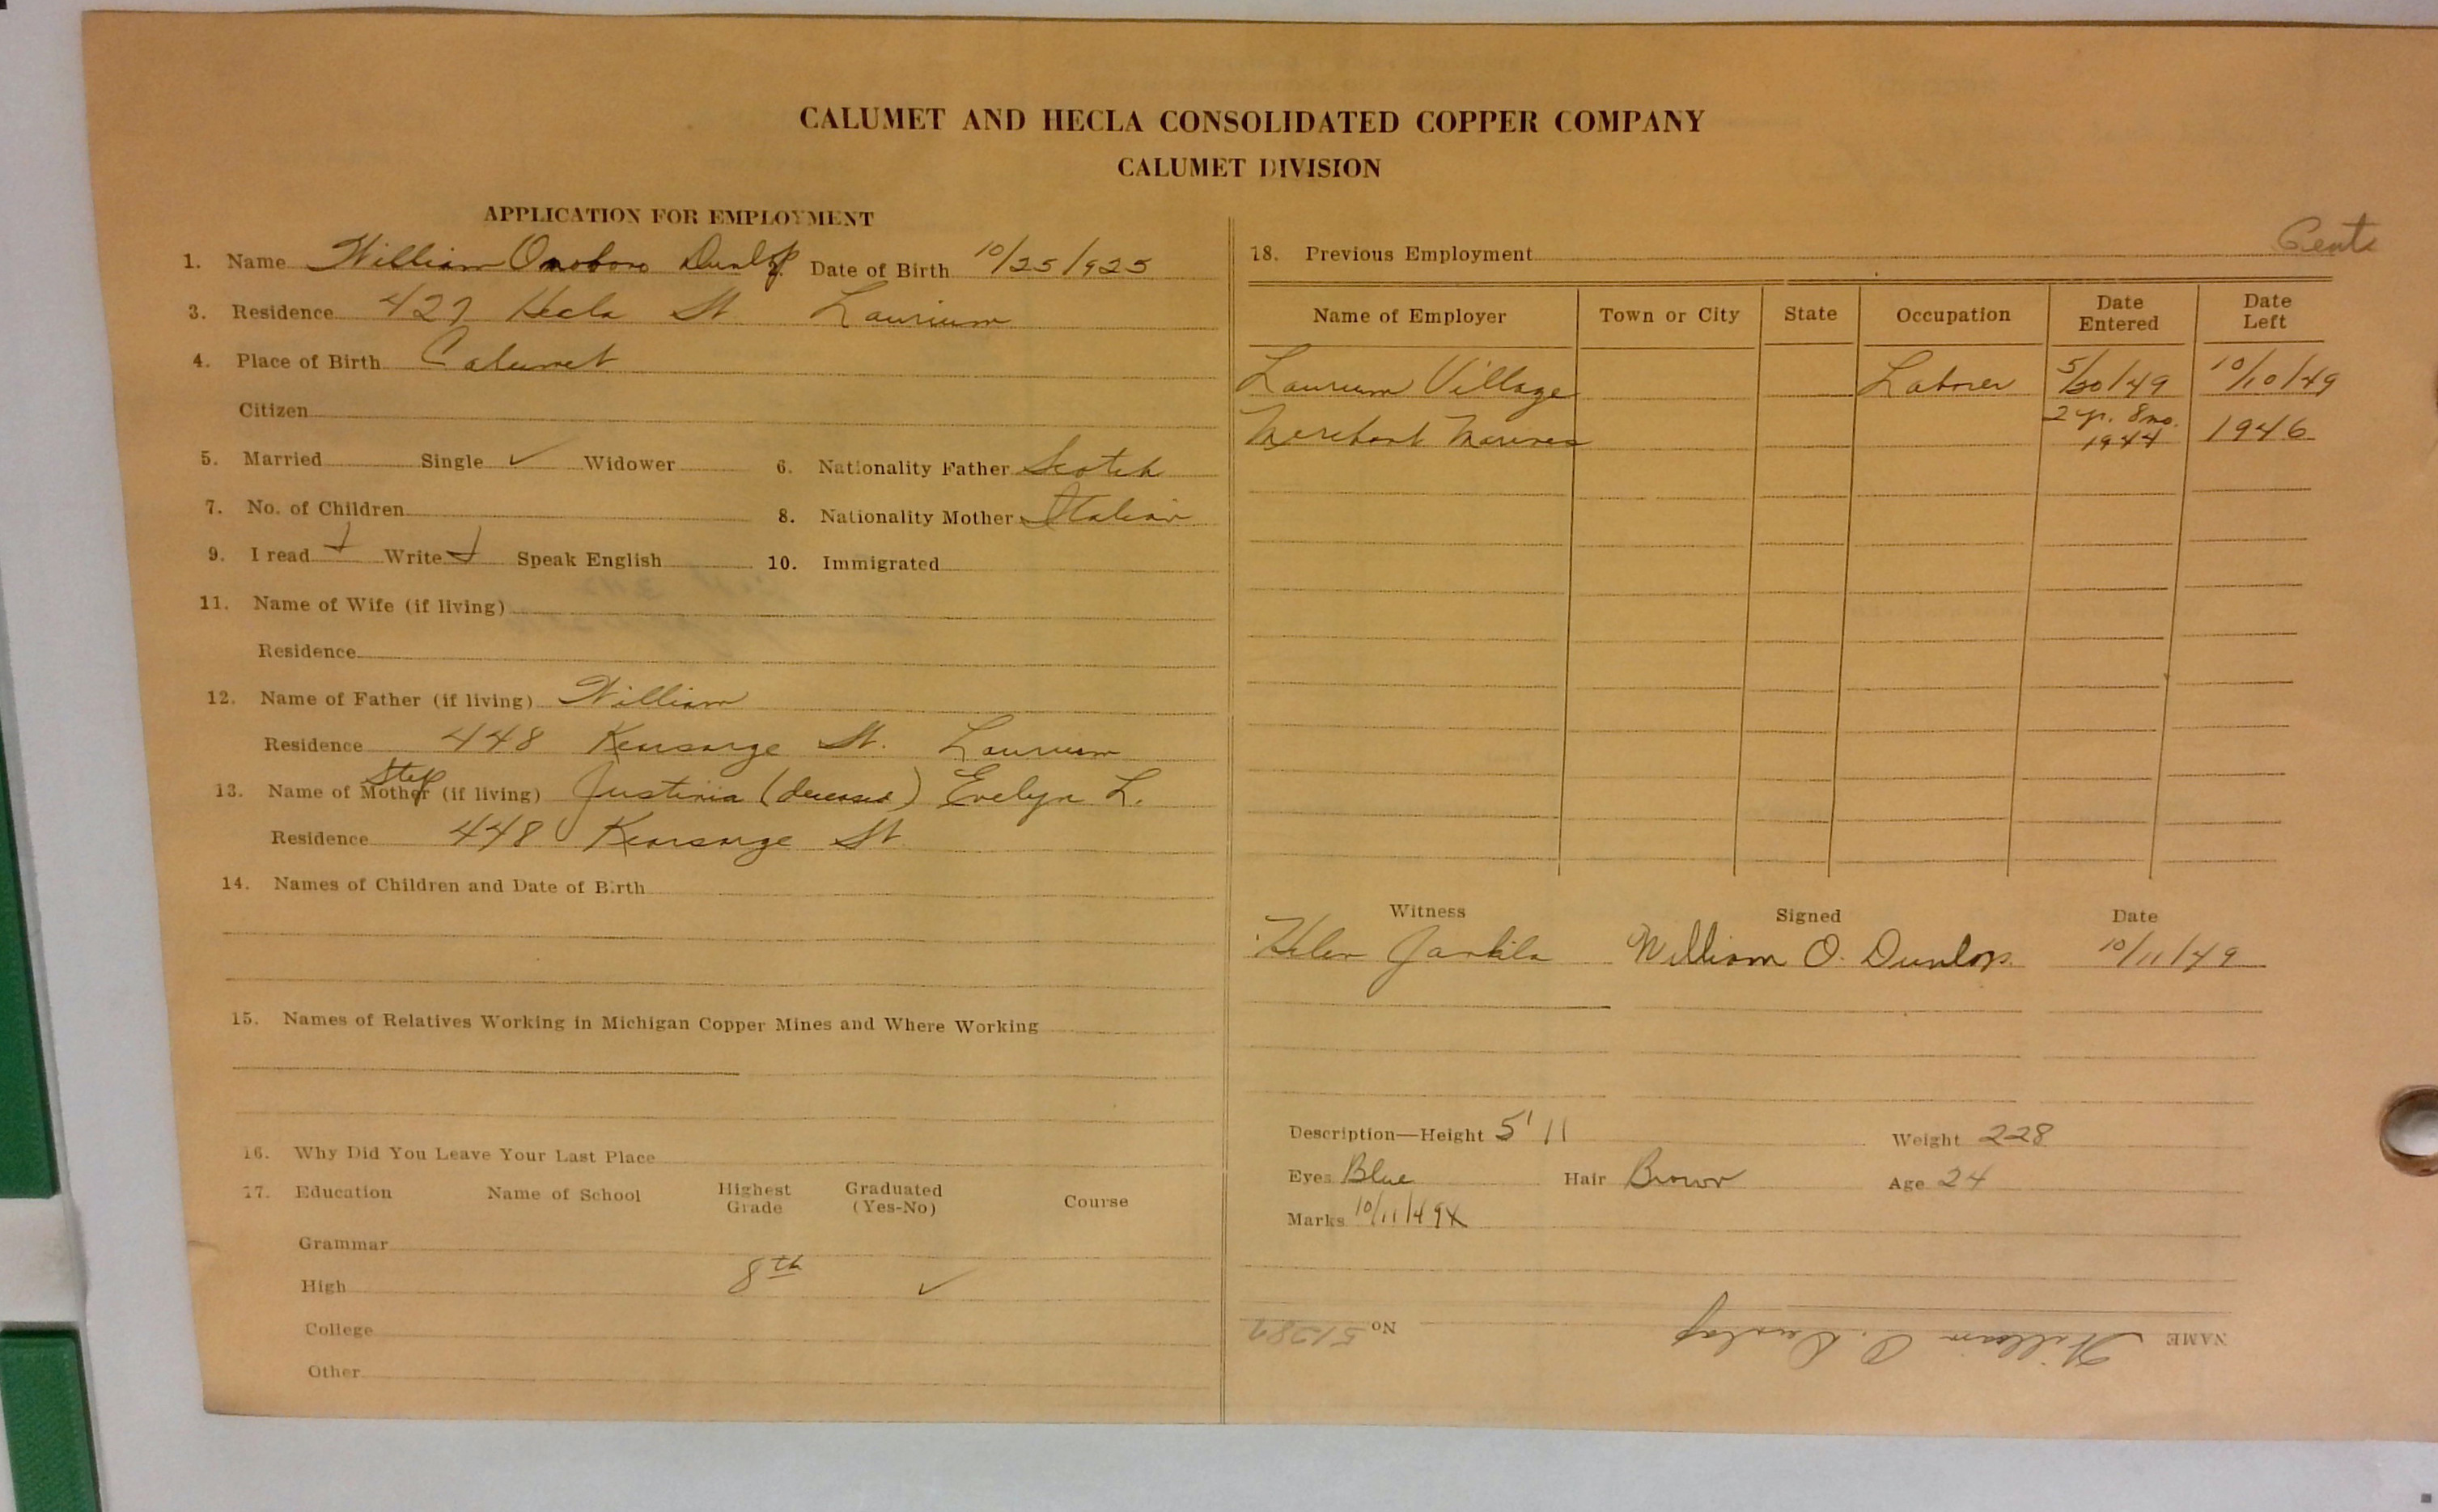 CALUMET AND HECLA CONSOLIDATED COPPER COMPANY
CALUMET DIVISION
APPLICATION FOR EMPLOYMENT
1. Name William Dunlop Date of Birth 10/25/1925
3. Residence 427 Hecla St Laurium
4. Place of Birth Calumet
Citizen
5. Married Single ✓ Widower 6. Nationality Father Scotch
7. No. of Children 8. Nationality Mother Italian
9. I read ✓ Write ✓ Speak English 10. Immigrated
11. Name of Wife (if living)
Residence
12. Name of Father (if living) William
Residence 448 Kearsarge St. Laurium
Step
13. Name of Mother (if living) Justinia (deceased) Evelyn L.
Residence 448 Kearsarge St
14. Names of Children and Date of Birth
15. Names of Relatives Working in Michigan Copper Mines and Where Working
16. Why Did You Leave Your Last Place
17. Education Name of School Highest Grade Graduated (Yes-No) Course
Grammar
High 8th ✓
College
Other
18. Previous Employment
Name of Employer Town or City State Occupation Date Entered Date Left
Laurium Village Laborer 5/30/49 10/10/49
2 yr. 8 mo.
Merchant Marines 1944 1946
Witness Signed Date
Helen William O. Dunlop 10/11/49
Description—Height 5' 11 Weight 228
Eyes Blue Hair Brown Age 24
Marks 10/11/49X
NAME William O. Dunlop No 51287